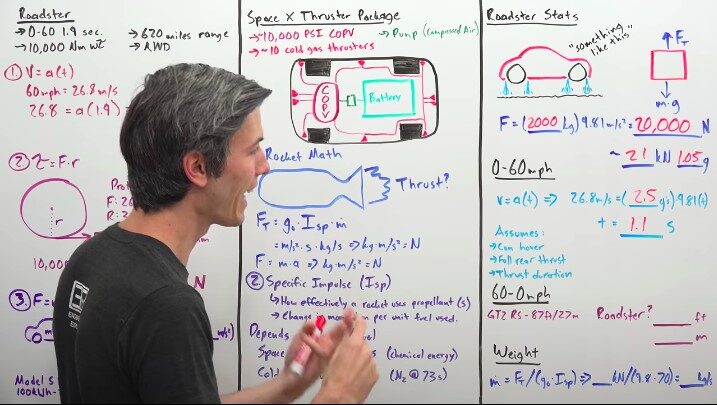 Roadster
→0-60 1.9 sec.
→620 miles range
→10,000 Nm
→AWD
1. V = a(t)
60mph = 26.8 m/s
26.8 = a(1.9)
2. τ = F·r
r
F:
10,000
N
3. F =
Model S
100kWh
Space X Thruster Package
→~10,000 PSI COPV
→Pump (Compressed Air)
→~10 cold gas thrusters
COPV
Battery
Rocket Math
Thrust?
F_T = g₀·Isp·ṁ
= m/s²·s·kg/s ⇒ kg·m/s² = N
F = m·a ⇒ kg·m/s² = N
2. Specific Impulse (Isp)
↳How effectively a rocket uses propellant (s)
per unit fuel used.
Depends
(chemical energy)
(N₂ @ 73s)
Roadster Stats
"something like this"
F_T
m·g
F = (2000 kg) 9.81 m/s² = 20,000 N
~ 21 kN 1.05 g
0-60mph
v = a(t) ⇒ 26.8 m/s = (2.5 g's)·9.81(t)
t = 1.1 s
Assumes:
→Can hover
→Full rear thrust
→Thrust duration
60-0mph
GT2 RS - 87ft/27m
Roadster? ___ ft
___ m
Weight
ṁ = F_T/(g₀·Isp) ⇒ __ kN/(9.8·70) = ___ kg/s